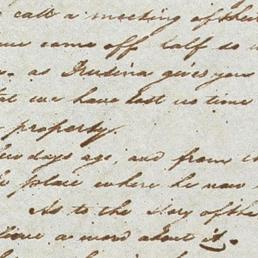 call a meeting of their
come off half so
as Trusina gives you
we have lost no time
property.
days ago, and from
place where he now
As to the story of the
time a word about it.